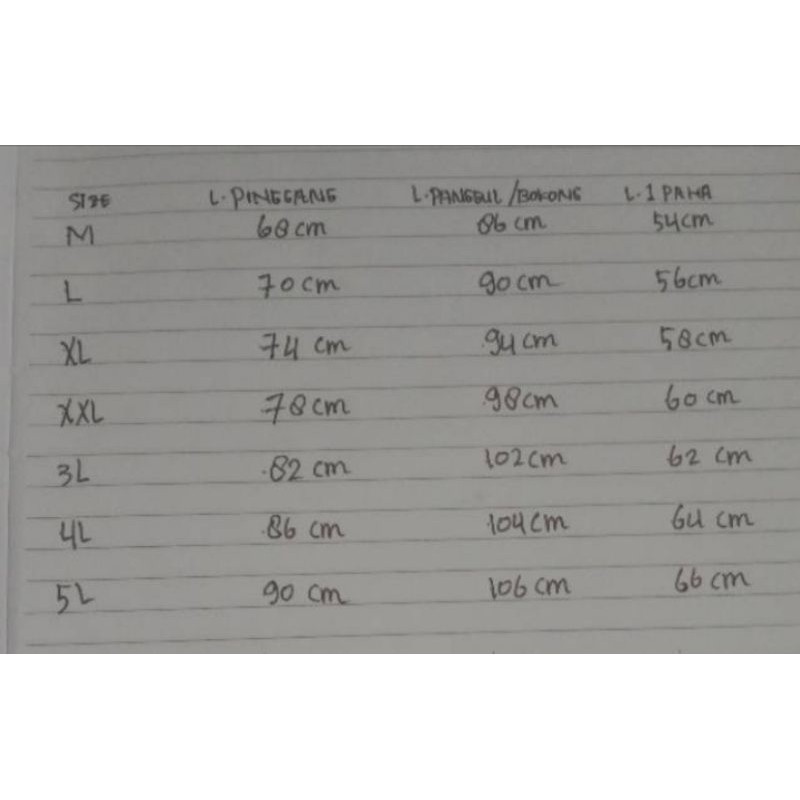 SIZE L.PINGGANG L.PANGGUL/BOKONG L.1 PAHA
M 68cm 86cm 54cm
L 70cm 90cm 56cm
XL 74 cm 94cm 58cm
XXL 78cm 98cm 60cm
3L 82 cm 102cm 62 cm
4L 86 cm 104cm 64 cm
5L 90 cm 106 cm 66 cm